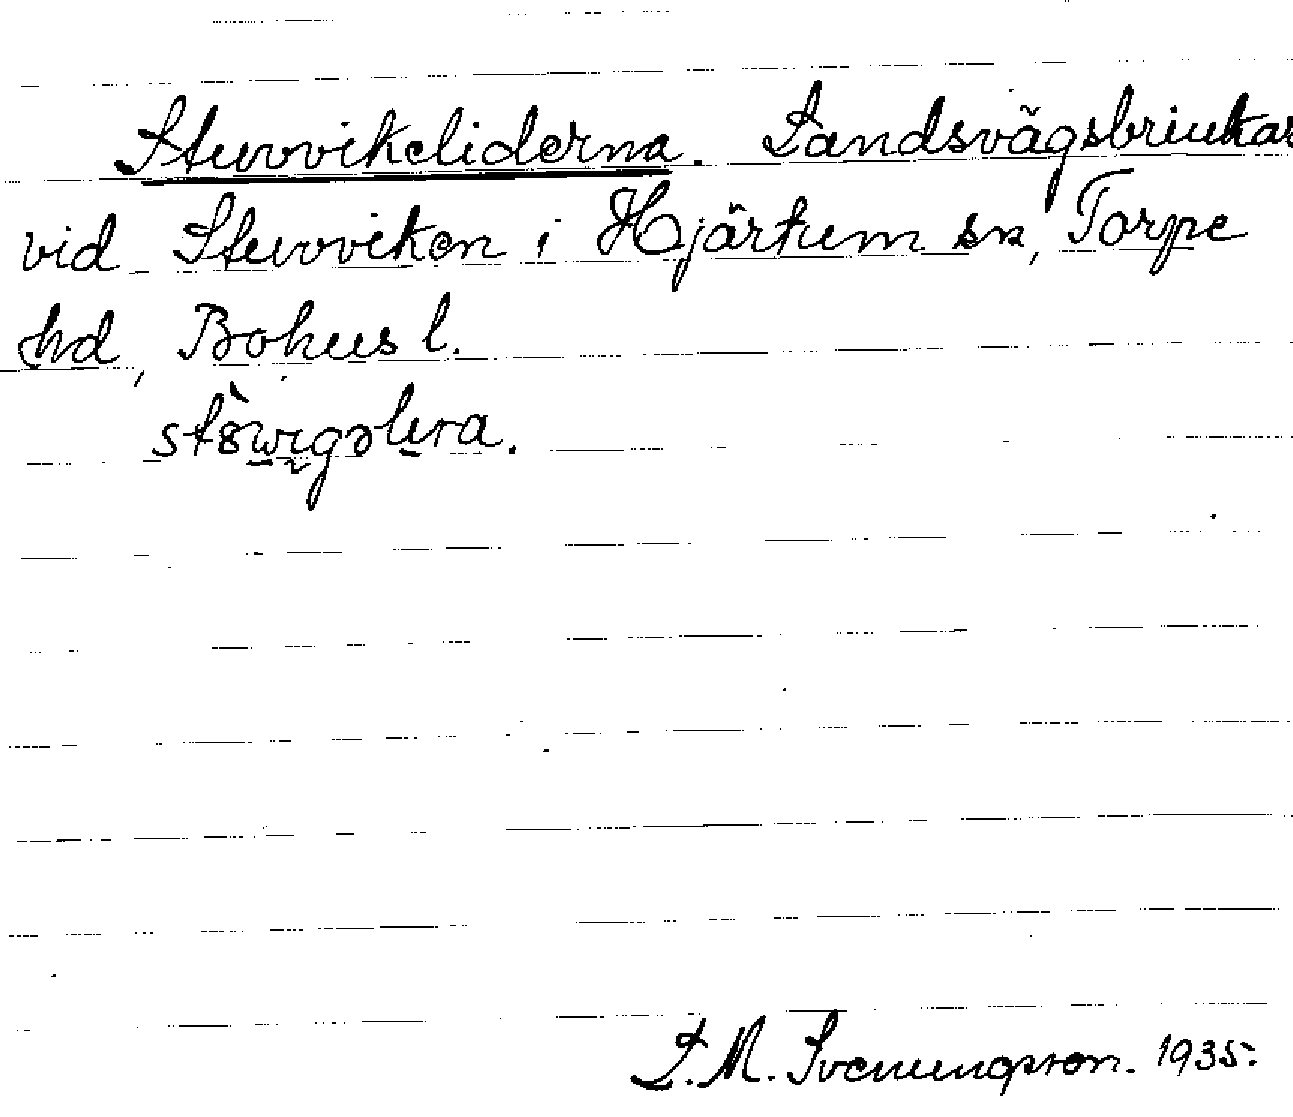 Stuvvikeliderna. Landsvägsbrinkar
vid Stuvviken i Hjärtum sn, Torpe
hd, Bohusl.
stöwigəlira.
L.M. Svenungsson. 1935.